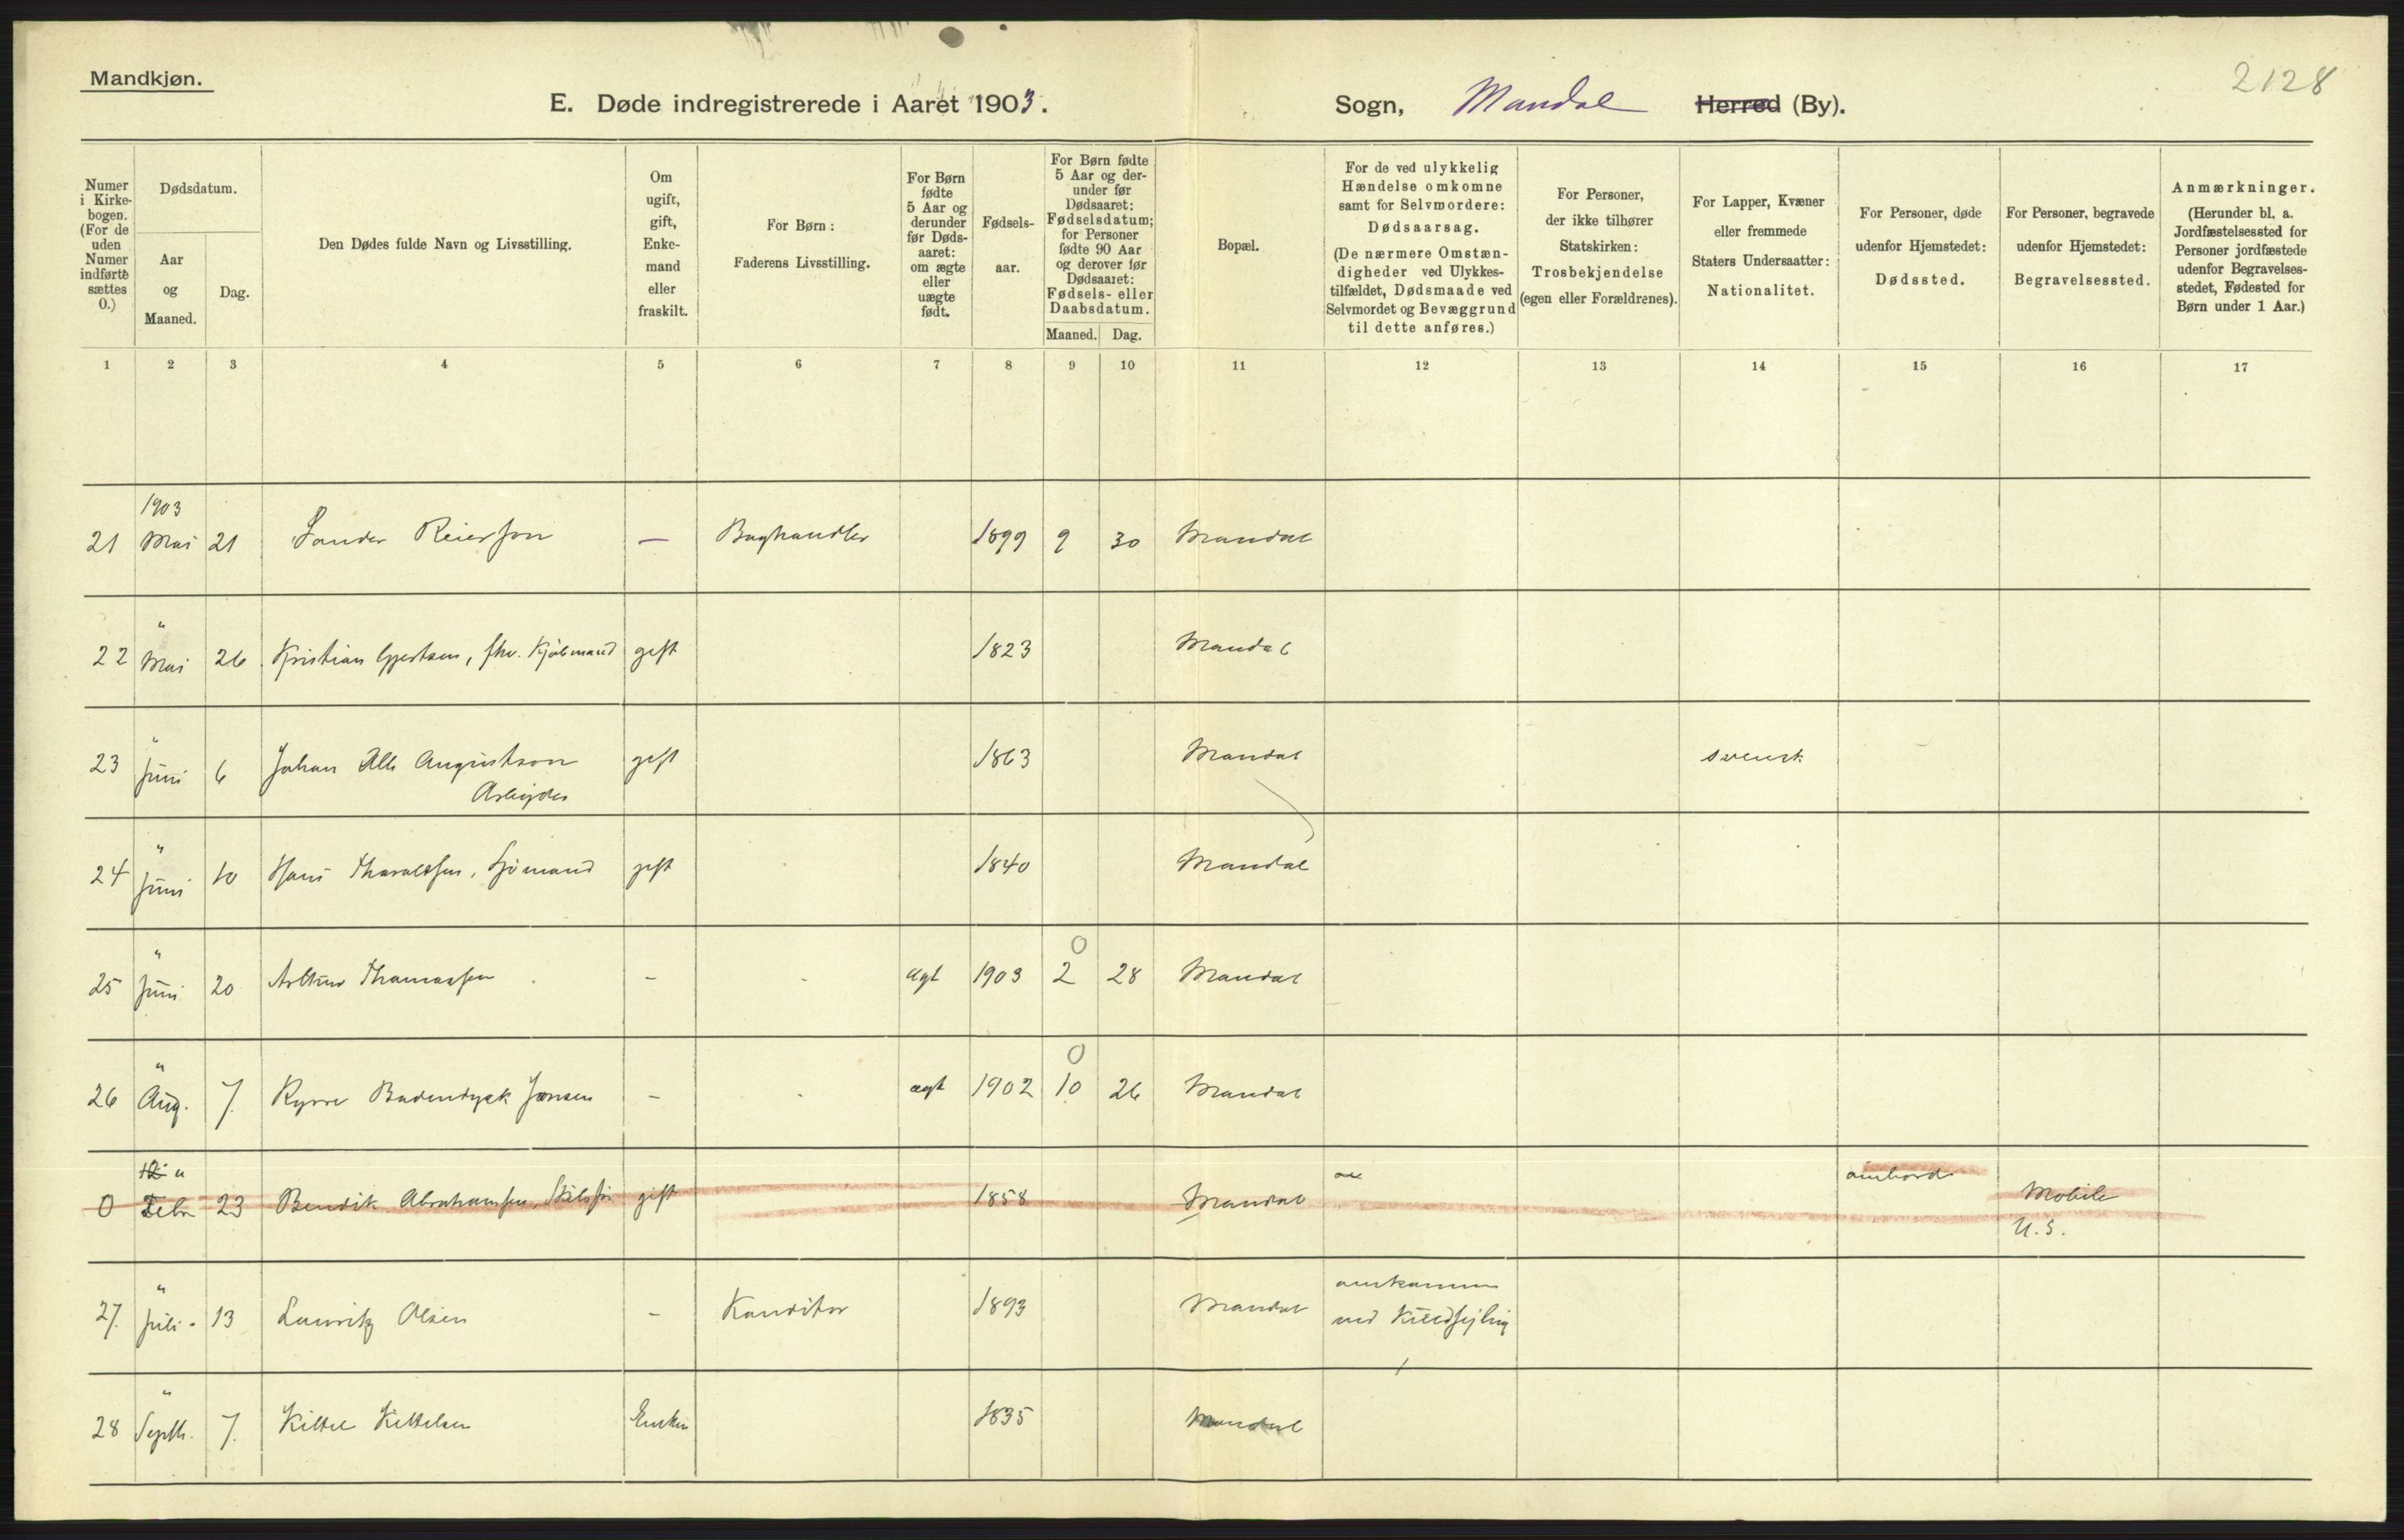 Mandkjøn.
2128
E. Døde indregistrerede i Aaret 1903. Sogn, Mandal Herred (By).
Numer i Kirke-bogen. (For de uden Numer indførte sættes 0.)
Dødsdatum.
Aar og Maaned.
Dag.
Den Dødes fulde Navn og Livsstilling.
Om ugift, gift, Enke-mand eller fraskilt.
For Børn: Faderens Livsstilling.
For Børn fødte 5 Aar og derunder før Døds-aaret: om ægte eller uægte født.
Fødsels-aar.
For Børn fødte 5 Aar og der-under før Dødsaaret: Fødselsdatum; for Personer fødte 90 Aar og derover før Dødsaaret: Fødsels- eller Daabsdatum.
Maaned. Dag.
Bopæl.
For de ved ulykkelig Hændelse omkomne samt for Selvmordere: Dødsaarsag. (De nærmere Omstæn-digheder ved Ulykkes-tilfældet, Dødsmaade ved Selvmordet og Bevæggrund til dette anføres.)
For Personer, der ikke tilhører Statskirken: Trosbekjendelse (egen eller Forældrenes).
For Lapper, Kvæner eller fremmede Staters Undersaatter: Nationalitet.
For Personer, døde udenfor Hjemstedet: Dødssted.
For Personer, begravede udenfor Hjemstedet: Begravelsessted.
Anmærkninger. (Herunder bl. a. Jordfæstelsessted for Personer jordfæstede udenfor Begravelses-stedet, Fødested for Børn under 1 Aar.)
1 2 3 4 5 6 7 8 9 10 11 12 13 14 15 16 17
1903
21 Mai 21 Sander Reierson — Baghandler 1899 9 30 Mandal
"
22 Mai 26 Kristian Gjertsen, fhv. Kjøbmand gift 1823 Mandal
"
23 Juni 6 Johan Alb Augustson gift 1863 Mandal svensk
Arbeider
"
24 Juni 10 Hans Tharaldsen, Sjømand gift 1840 Mandal
" 0
25 Juni 20 Arthur Thomassen - - ægt 1903 2 28 Mandal
" 0
26 Aug. 7. Rynre Badendyck Jonsen - - ægt 1902 10 26 Mandal
"
0 Febr 23 Bendik Abrahamsen, gift 1858 Mandal ombord Mobile
U.S.
" omkommen
27. Juli 13 Lauritz Olsen - Konditor 1893 Mandal ved Kuldsejling
"
28 Septb. 7. Kittel Kittelsen Enkem 1835 Mandal